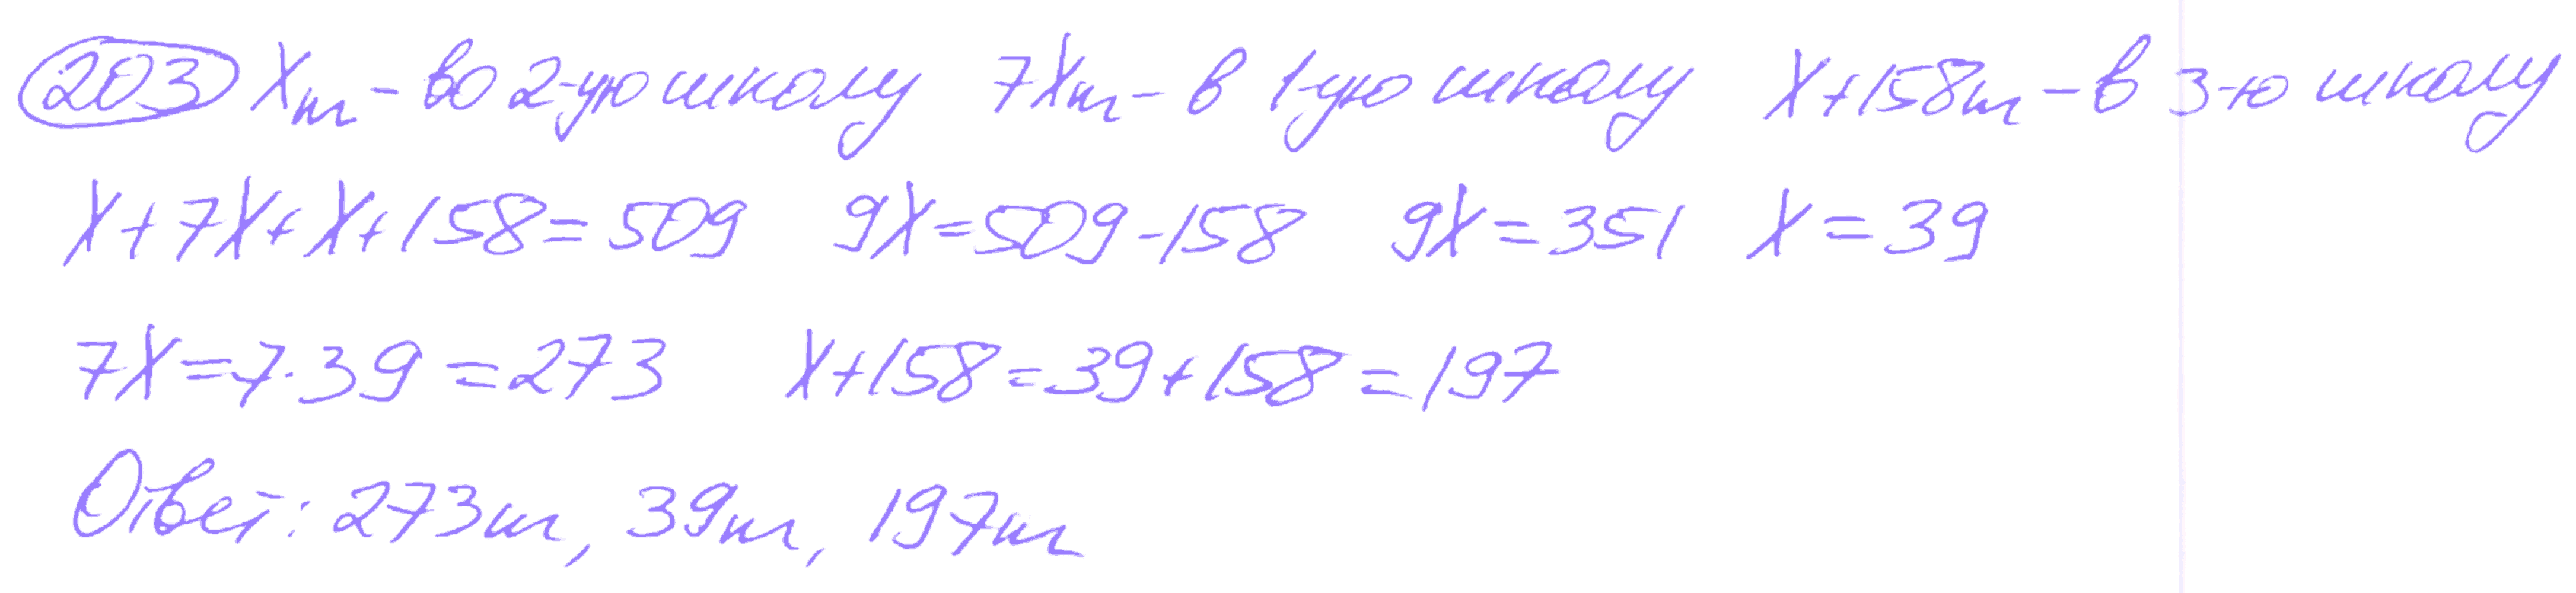 203 Xт - во 2-ую школу 7Xт - в 1-ую школу X+158т - в 3-ю школу
X+7X+X+158=509 9X=509-158 9X=351 X=39
7X=7·39=273 X+158=39+158=197
Ответ: 273т, 39т, 197т